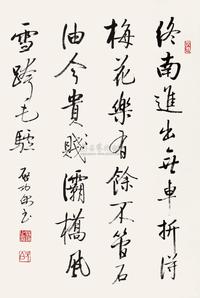 終南進出無車拼得
梅花樂有餘不管石
油今貴賤灞橋風
雪跨毛驢 啓功並書